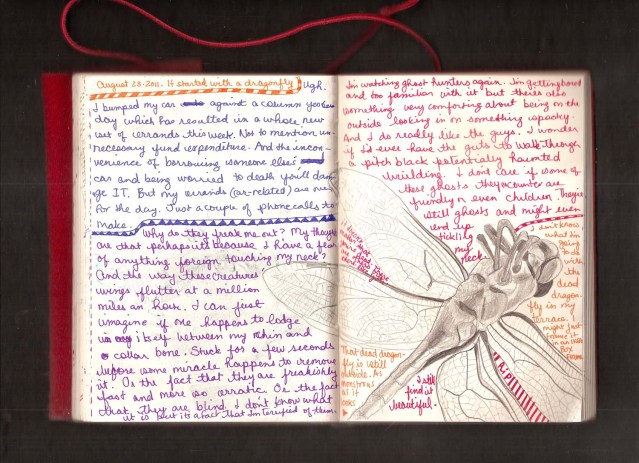 August 28.2011. It started with a dragonfly Ugh.
I bumped my car against a column yester
day which has resulted in a whole new
set of errands this week. Not to mention un-
necessary fund expenditure. And the incon-
venience of borrowing someone else's
car and being worried to death you'll dam-
age IT. But my errands (car-related) are over
for the day. Just a couple of phone calls to
make.
Why do they freak me out? My theories
are that perhaps its because I have a fear
of anything foreign touching my neck?
And the way these creatures'
wings flutter at a million
miles an hour. I can just
imagine if one happens to lodge
itself between my chin and
collar bone. Stuck for a few seconds
before some miracle happens to remove
it. Or the fact that they are freakishly
fast and more so erratic. Or the fact
that they are blind. I don't know what
it is but its a fact that I'm terrified of them.
I'm watching ghost hunters again. I'm getting bored
and too familiar with it but there's also
something very comforting about being on the
outside looking in on something spooky.
And I do really like the guys. I wonder
if I'd ever have the guts to walk through
a pitch black potentially haunted
building. I don't care if some of
these ghosts they encounter are
friendly or even children. They're
still ghosts and might even
end up
tickling
my
neck.
I don't know
what I'm
going
to do
with
the
dead
dragon-
fly in my
terrace. I
might just
frame it
in
Box
Frame
That dead dragon-
fly is still
outside. As
monstrous
as it
looks
I still
find it
beautiful.
R.I.P!